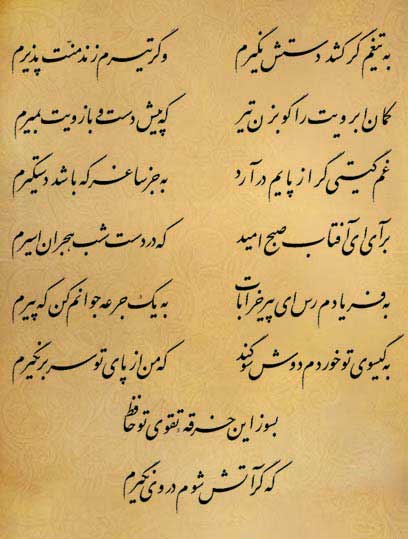 به تیغم گر کشد دستش نگیرم وگر تیرم زند منّت پذیرم
کمان ابرویت را گو بزن تیر که پیش دست و بازویت بمیرم
غم گیتی گر از پایم درآرد به جز ساغر که باشد دستگیرم
برآی ای آفتاب صبح امید که در دست شب هجران اسیرم
به فریادم رس ای پیر خرابات به یک جرعه جوانم کن که پیرم
به گیسوی تو خوردم دوش سوگند که من از پای تو سر بر نگیرم
بسوز این خرقه تقوی تو حافظ
که گر آتش شوم در وی نگیرم